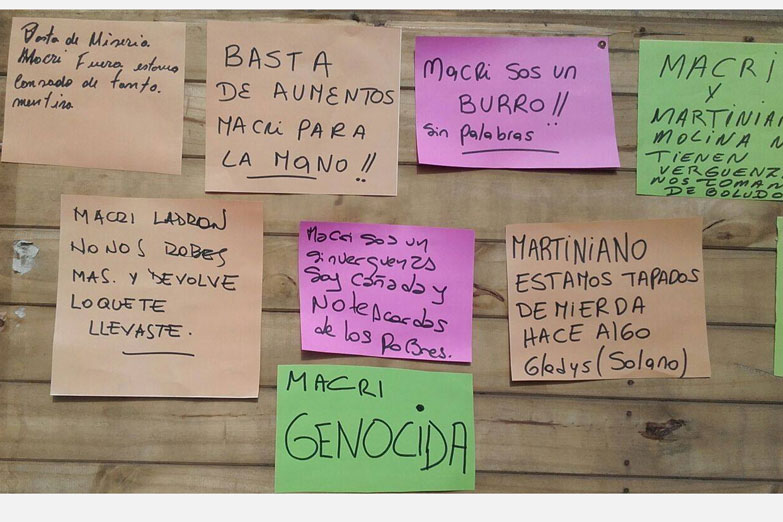 Basta de Miseria
Macri Fuera estamo
cansado de tanto.
mentira
BASTA
DE AUMENTOS
MACRI PARA
LA MANO!!
Macri sos un
BURRO!!
Sin palabras
MACRI
Y
MARTINIA
MOLINA N
TIENEN
VERGUENZ
NOS TOMAN
DE BOLUDO
MACRI LADRON
NO NOS ROBES
MAS. Y DEVOLVE
LO QUE TE
LLEVASTE.
Macri sos un
sinverguenza
Soy Cañada y
NO te Acordas
de los Pobres.
MARTINIANO
ESTAMOS TAPADOS
DE MIERDA
HACE AlGO
Gladys (Solano)
MACRI
GENOCIDA